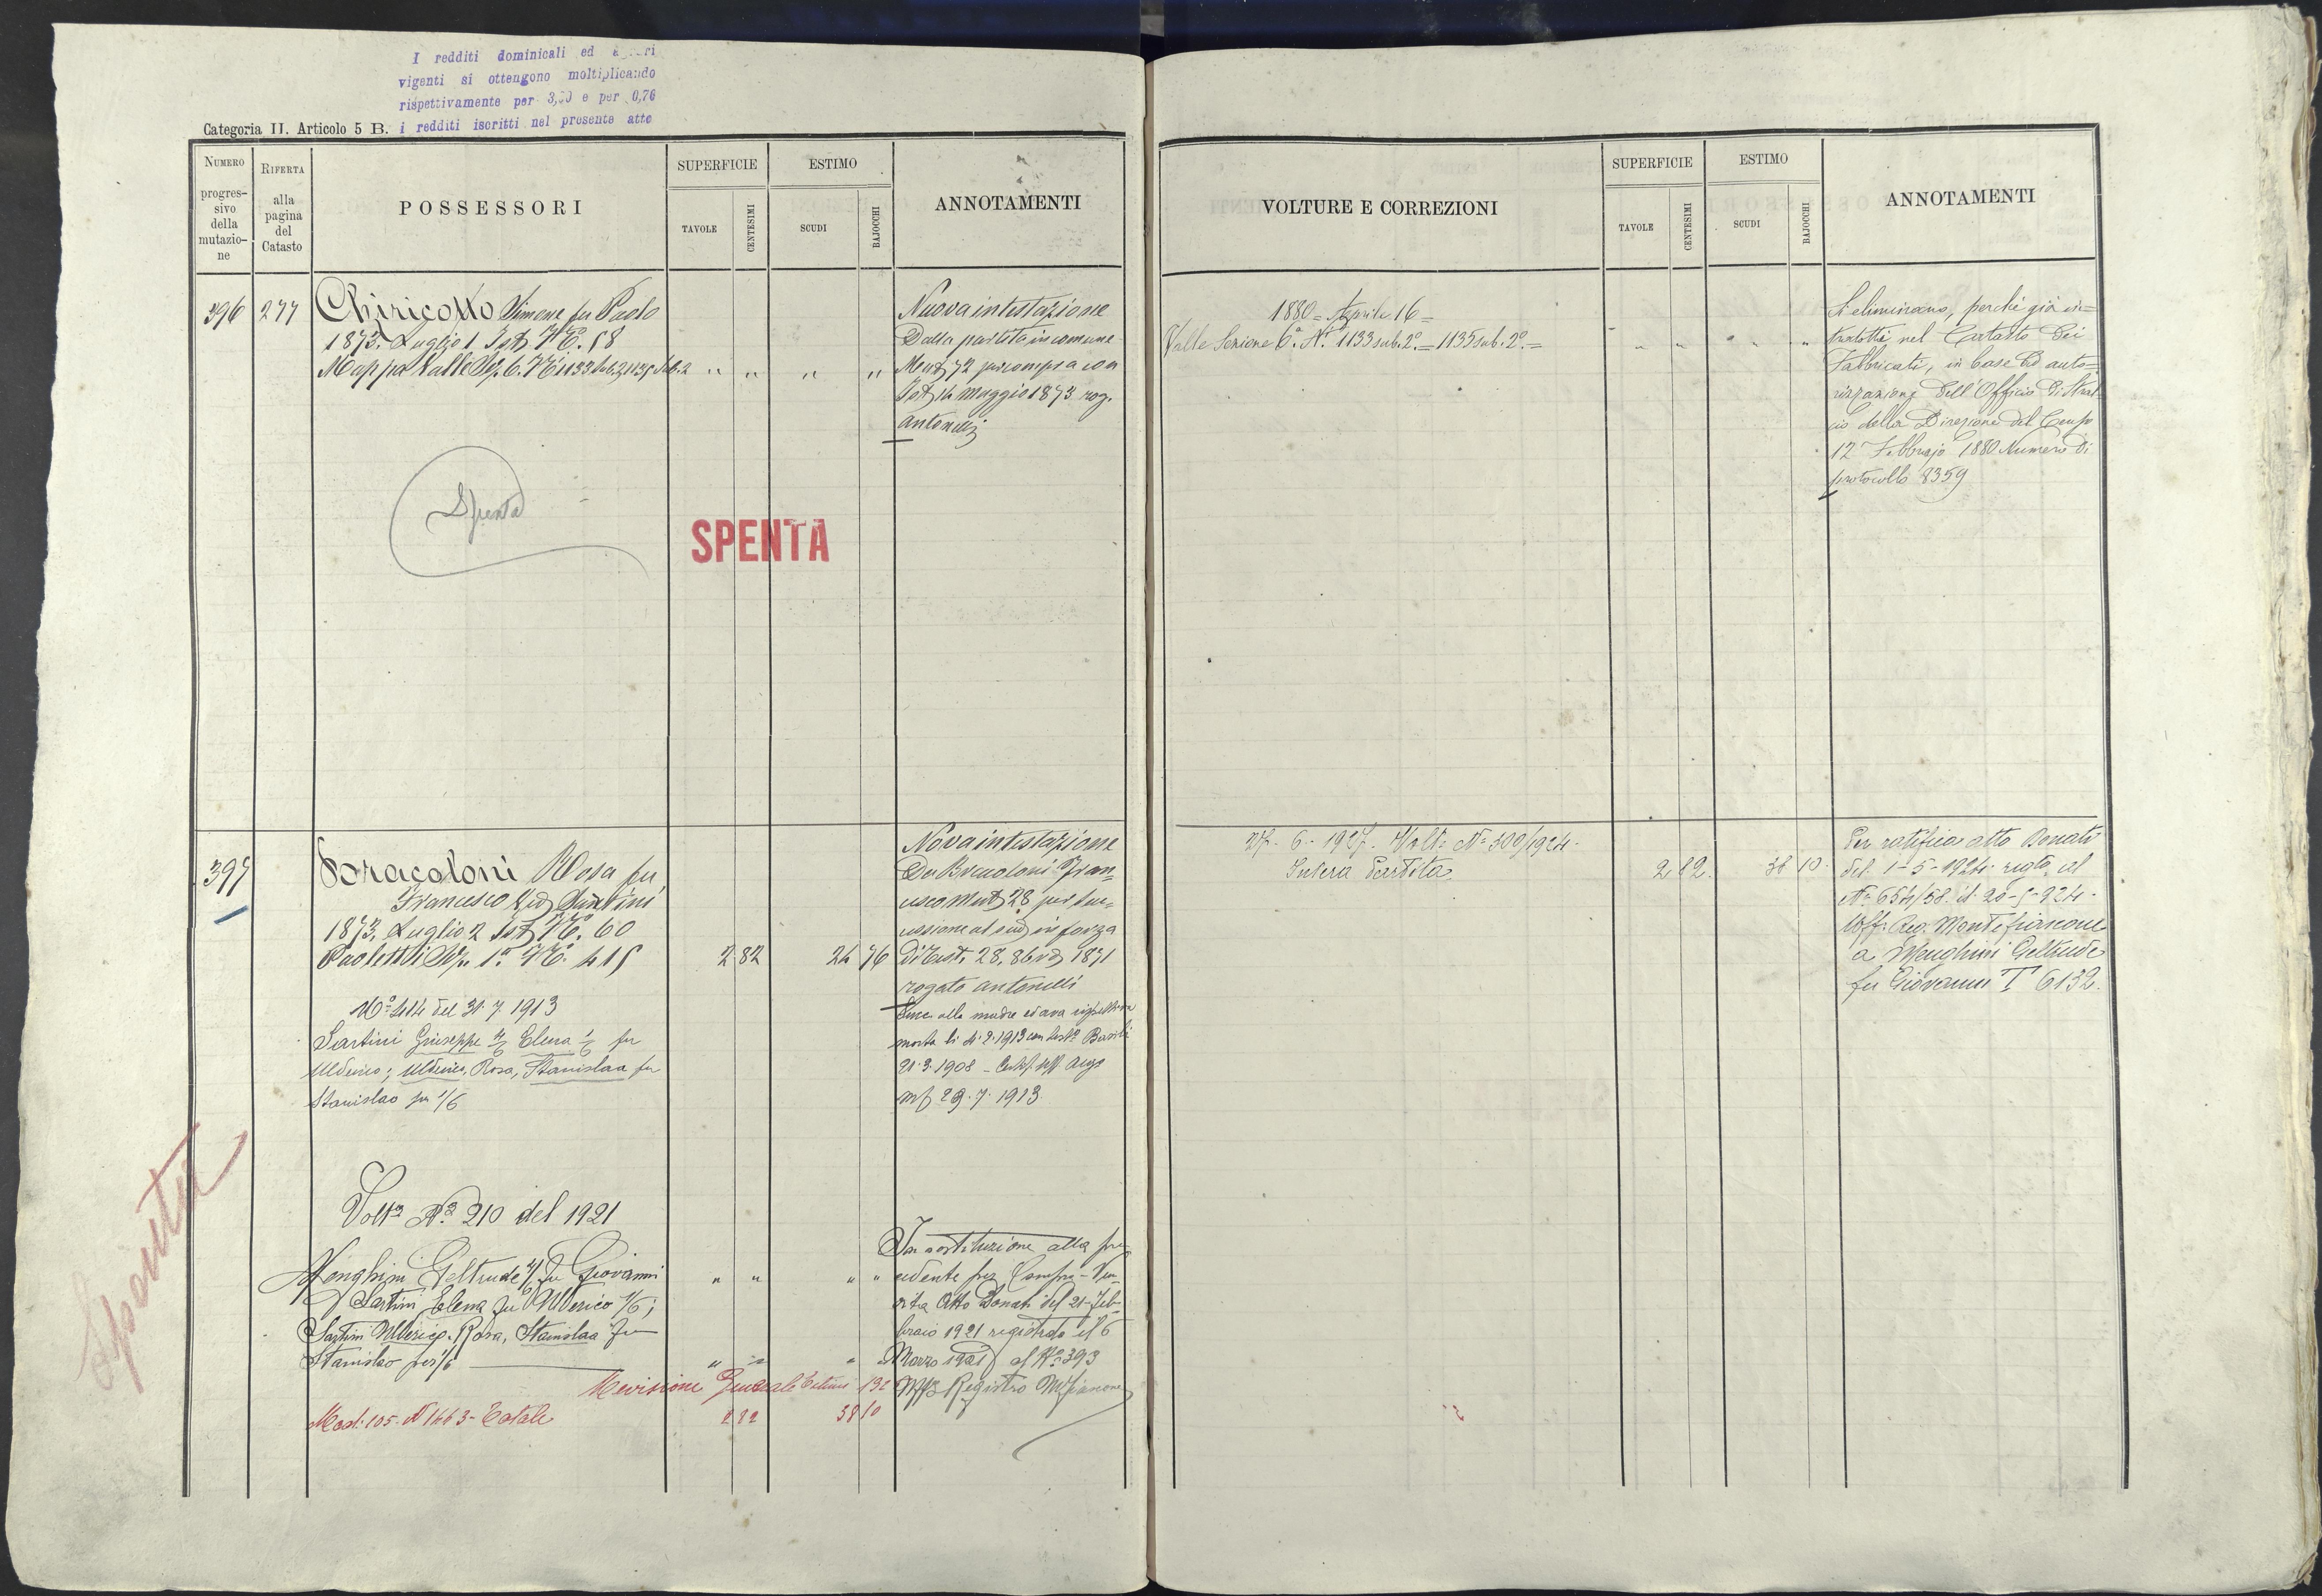 I redditi dominicali ed
vigenti si ottengono moltiplicando
rispettivamente per 3,50 e per 0,76
Categoria II. Articolo 5 B. i redditi iscritti nel presente atto
NUMERO progressivo della mutazione
RIFERTA alla pagina del Catasto
POSSESSORI
SUPERFICIE
TAVOLE
CENTESIMI
ESTIMO
SCUDI
BAJOCCHI
ANNOTAMENTI
396 277 Chiricotto Simone fu Paolo
1873. Luglio 1 Ist. N°. 58
Mappa Valle Sez. 6. Ni 1133 sub. 2 1135 sub. 2 " " " "
Nuova intestazione
Dalla partita in comune
Mut. 72 per compra con
Ist. 14 Maggio 1873 rog.
Antonelli
Spenta
SPENTA
397 Bracoloni Rosa fu
Francesco Ved. Santini
1873. Luglio 2 Ist. N°. 60
Paoletti Sez. 1a N°. 415 2 82 24 76
Nova intestazione
Da Bracoloni Fran=
cesco Mut. 28 per suc=
cessione al sud. in forza
di Test. 28. 1871
rogato Antonelli
N° 414 del 31.7.1913
Sartini Giuseppe 4/6 Elena 1/6 fu
Ulderico; Ulderico, Rosa, Stanislaa fu
Stanislao per 1/6
Succ. alla madre ed ava rispettiva
morta li 4.2.1913 con test° Basili
21.3.1908 -
Mf 29.7.1913.
Spenta
Volt.a N° 210 del 1921
Menghini Geltrude 4/6 fu Giovanni " " " "
Sartini Elena fu Ulderico 1/6;
Sartini Ulderico, Rosa, Stanislaa fu
Stanislao per 1/6 " " " "
In sostituzione alla pre
cedente per Compra-Ven
dita Atto Donati del 21-Feb=
braio 1921 registrato il 6
Marzo 1921 al N° 393
Registro Mfiascone
Revisione Generale Estimi 132
Mod. 105. N 1663- Totale 2 82 38 10
VOLTURE E CORREZIONI
SUPERFICIE
TAVOLE
CENTESIMI
ESTIMO
SCUDI
BAJOCCHI
ANNOTAMENTI
1880 = Aprile 16 =
Valle Sezione 6a. Ni. 1133 sub. 2°. = 1135 sub. 2°. = " " " "
Si eliminano, perchè già in=
trodotti nel Catasto dei
Fabbricati, in base ad auto=
rizzazione dell'Officio di Stral=
cio della Direzione del Censo
12 Febbrajo 1880 Numero di
protocollo 8359
6 - 1927. Volt. N° 300/1924.
Intera Partita 2 82. 38 10.
Per ratifica atto Donati
del 1-5-1924. regto. al
N° 654/58. il 20-5-924.
Uff. Reg. Montefiascone
a Menghini Geltrude
fu Giovanni T 6132.